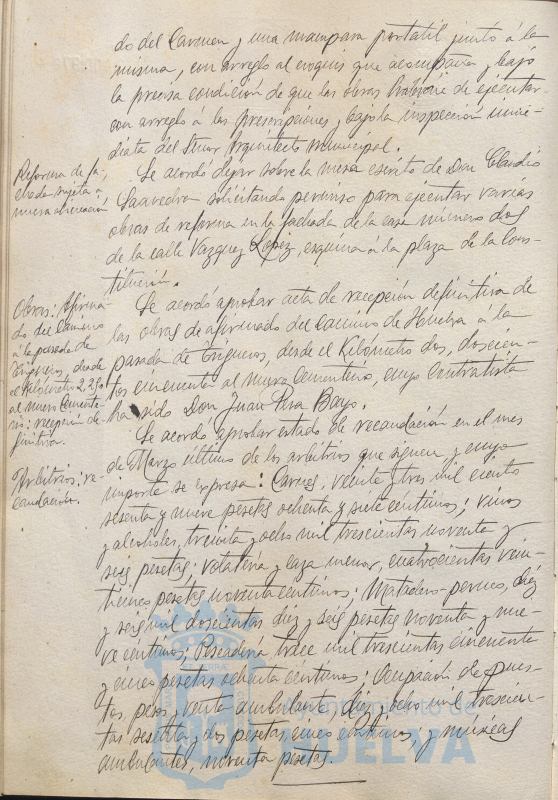 do del Carmen y una mampara portatil junto á la
misma, con arreglo al croquis que acompaña y bajo
la precisa condición de que las obras habrán de ejecutar-
con arreglo á las prescripciones, bajo la inspección inme-
diata del Señor Arquitecto Municipal.
Reforma de fa-
chada sujeta a
nueva alineación
Se acordó dejar sobre la mesa escrito de Don Claudio
Saavedra solicitando permiso para ejecutar varias
obras de reforma en la fachada de la casa número dos
de la calle Vazquez Lopez, esquina á la plaza de la Cons-
titución.
Obras: Afirma-
do del Camino
a la pasada de
Trigueros, desde
el Kilómetro 2,250
al nuevo Cemente-
rio: recepción de-
finitiva.
Se acordó aprobar acta de recepción definitiva de
las obras de afirmado del camino de Huelva á la
pasada de Trigueros, desde el Kilómetro dos, doscien-
tos cincuenta al nuevo Cementerio, cuyo contratista
ha sido Don Juan Bayo.
Arbitrios: re-
caudación.
Se acordó aprobar estado de recaudación en el mes
de Marzo último de los arbitrios que siguen y cuyo
importe se expresa: Carnes, veinte y tres mil ciento
sesenta y nueve pesetas ochenta y siete centimos; vinos
y alcoholes, treinta y ocho mil trescientas noventa y
seis pesetas; volatería y caza menor, cuatrocientas vein-
ticinco pesetas noventa centimos; Matadero-perneo, diez
y seis mil doscientas diez y seis pesetas noventa y nue-
ve centimos; Pescadería trece mil trescientas cincuenta
y cinco pesetas ochenta centimos; ocupación de pues-
tos, pesos, venta ambulante, diez y ocho mil trescien-
tas sesenta y dos pesetas cinco centimos; y músicas
ambulantes, noventa pesetas.
Ayuntamiento de
HUELVA